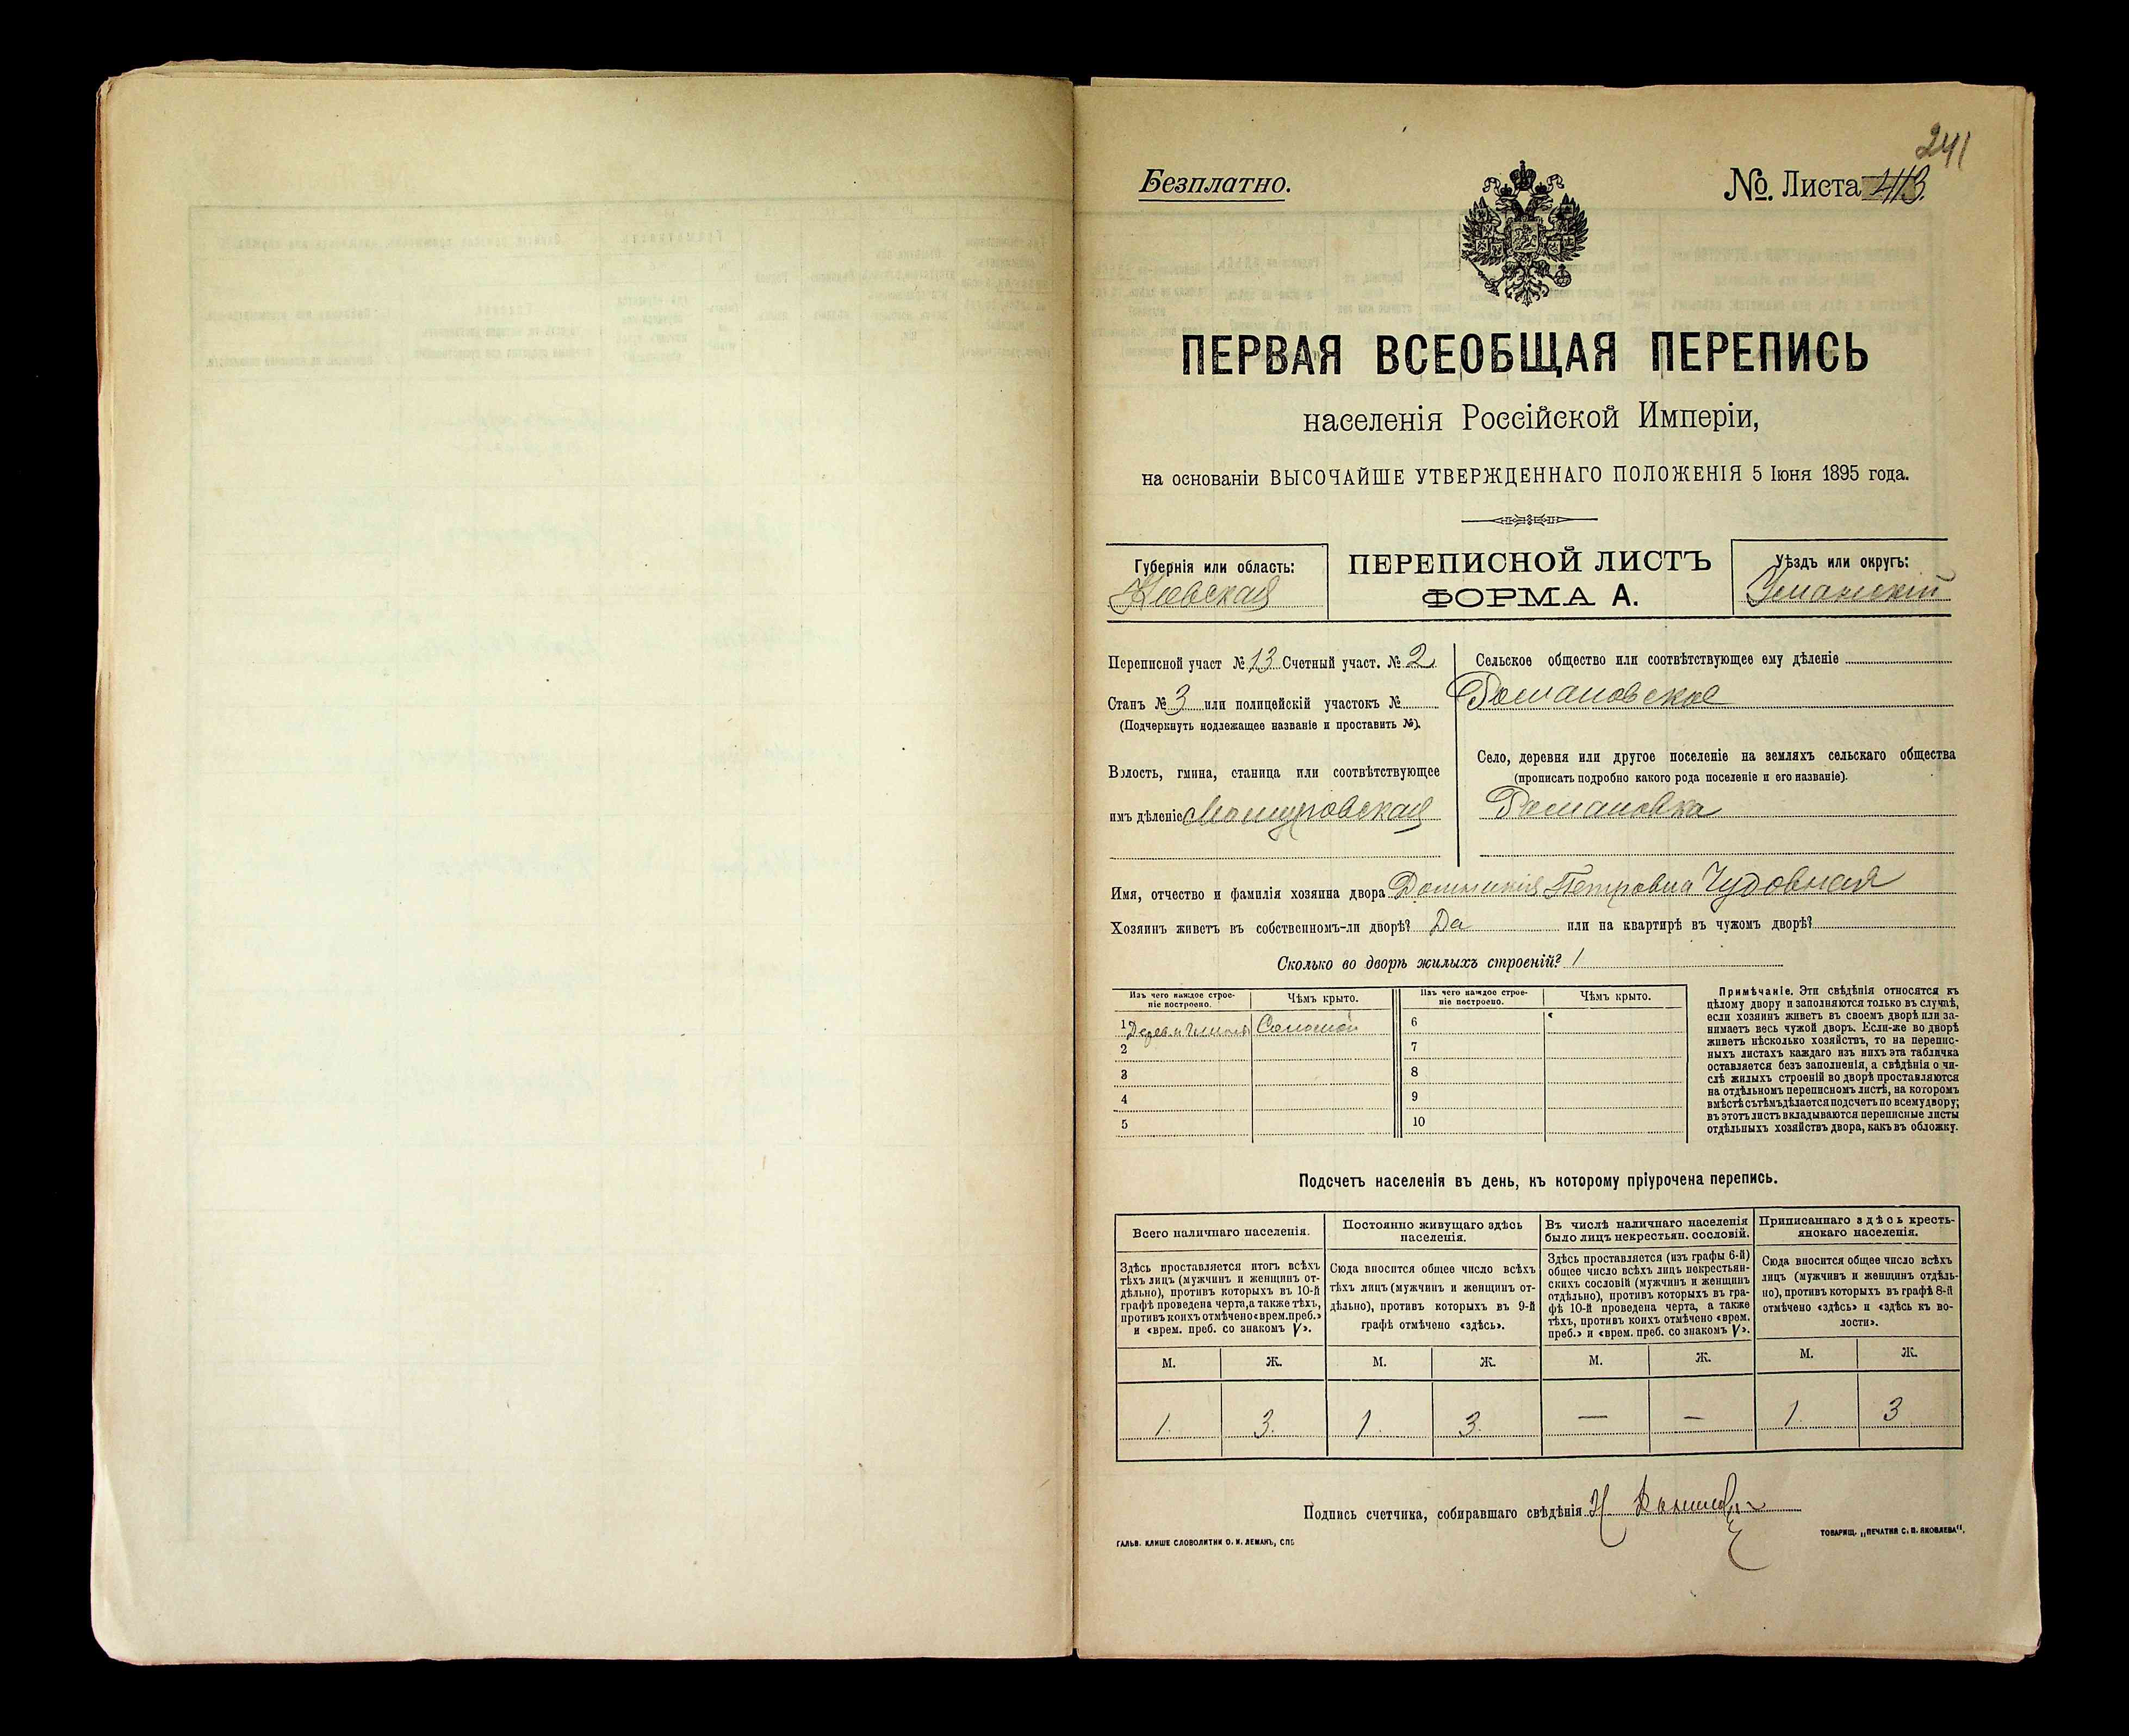 241
Безплатно.
№. Листа 413.
ПЕРВАЯ ВСЕОБЩАЯ ПЕРЕПИСЬ
населенія Россійской Имперіи,
на основаніи ВЫСОЧАЙШЕ УТВЕРЖДЕННАГО ПОЛОЖЕНІЯ 5 Іюня 1895 года.
Губернія или область:
Кіевская
ПЕРЕПИСНОЙ ЛИСТЪ
ФОРМА А.
Уѣздъ или округъ:
Уманскій
Переписной участ № 13 Счетный участ. № 2
Станъ № 3 или полицейскій участокъ №
(Подчеркнуть подлежащее названіе и проставить №).
Волость, гмина, станица или соотвѣтствующее
имъ дѣленіе
Сельское общество или соотвѣтствующее ему дѣленіе
Романовское
Село, деревня или другое поселеніе на земляхъ сельскаго общества
(прописать подробно какого рода поселеніе и его названіе).
Романовка
Имя, отчество и фамилія хозяина двора Домникія Петровна Чудовная
Хозяинъ живетъ въ собственномъ-ли дворѣ? Да или на квартирѣ въ чужомъ дворѣ?
Сколько во дворѣ жилыхъ строеній? 1
Изъ чего каждое строе-
ніе построено.
Чѣмъ крыто.
Изъ чего каждое строе-
ніе построено.
Чѣмъ крыто.
1 Дерев. и Соломой
2
3
4
5
6
7
8
9
10
Примѣчаніе. Эти свѣдѣнія относятся къ
цѣлому двору и заполняются только въ случаѣ,
если хозяинъ живетъ въ своемъ дворѣ или за-
нимаетъ весь чужой дворъ. Если-же во дворѣ
живетъ нѣсколько хозяйствъ, то на перепис-
ныхъ листахъ каждаго изъ нихъ эта табличка
оставляется безъ заполненія, а свѣдѣнія о чи-
слѣ жилыхъ строеній во дворѣ проставляются
на отдѣльномъ переписномъ листѣ, на которомъ
вмѣстѣ съ тѣмъ дѣлается подсчетъ по всему двору;
въ этотъ листъ вкладываются переписные листы
отдѣльныхъ хозяйствъ двора, какъ въ обложку.
Подсчетъ населенія въ день, къ которому пріурочена перепись.
Всего наличнаго населенія.
Здѣсь проставляется итогъ всѣхъ
тѣхъ лицъ (мужчинъ и женщинъ от-
дѣльно), противъ которыхъ въ 10-й
графѣ проведена черта, а также тѣхъ,
противъ коихъ отмѣчено «врем. преб.»
и «врем. преб. со знакомъ V».
Постоянно живущаго здѣсь
населенія.
Сюда вносится общее число всѣхъ
тѣхъ лицъ (мужчинъ и женщинъ от-
дѣльно), противъ которыхъ въ 9-й
графѣ отмѣчено «здѣсь».
Въ числѣ наличнаго населенія
было лицъ некрестьян. сословій.
Здѣсь проставляется (изъ графы 6-й)
общее число всѣхъ лицъ некрестьян-
скихъ сословій (мужчинъ и женщинъ
отдѣльно), противъ которыхъ въ гра-
фѣ 10-й проведена черта, а также
тѣхъ, противъ коихъ отмѣчено «врем.
преб.» и «врем. преб. со знакомъ V».
Приписаннаго здѣсь кресть-
янскаго населенія.
Сюда вносится общее число всѣхъ
лицъ (мужчинъ и женщинъ отдѣль-
но), противъ которыхъ въ графѣ 8-й
отмѣчено «здѣсь» и «здѣсь къ во-
лости».
М. Ж. М. Ж. М. Ж. М. Ж.
1. 3. 1. 3. — — 1. 3
Подпись счетчика, собиравшаго свѣдѣнія
ГАЛЬВ. КЛИШЕ СЛОВОЛИТНИ О. И. ЛЕМАНЪ, СПБ
ТОВАРИЩ. „ПЕЧАТНЯ С. П. ЯКОВЛЕВА".